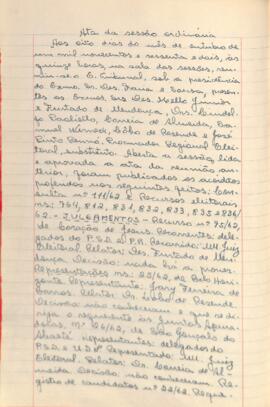 Ata da sessão ordinária
Aos oito dias do mês de outubro de
um mil novecentos e sessenta e dois, às
quinze horas, na sala das sessões, reu-
niu-se o E. Tribunal, sob a presidência
do Exmo. Sr. Des. Faria e Sousa, presen-
tes os Exmos. Srs. Des. Mello Júnior
e Furtado de Mendonça, Drs. Lindol-
fo Paoliello, Correia de Almeida, Ma-
nuel, Lobo de Resende e José
Procurador Regional Elei-
toral, substituto. Aberta a sessão, lida
e aprovada a ata da reunião an-
terior, foram publicados os acórdãos
proferidos nos seguintes feitos: Con-
sulta nº 111/62 e Recursos eleitorais
ns: 764, 812, 831, 832, 833, 835 e 836/
62. - JULGAMENTOS - Recurso nº 95/62,
de Coração de Jesus. Recorrentes: dele-
gados do P.S.D. e P.R. Recorrido: MM. Juiz
Eleitoral. Relator: Des. Furtado de Men-
donça. Decisão: nada há a prover.
Representações ns: 25/62, de Belo Hori-
zonte. Representante: Jary Ferreira de
Barros. Relator: Dr. Lobo de Resende.
Decisão: não conheceram e que se di-
rija o requerente às Juntas Apura-
doras. Nº 26/62, de São Gonçalo do
Abaeté. Representantes: delegados do
P.S.D. e U.D.N. Representado: MM. Juiz
Eleitoral. Relator: Dr. Correia de Al-
meida. Decisão: não conheceram. Re-
gistro de candidatos nº 22/62. Reque-